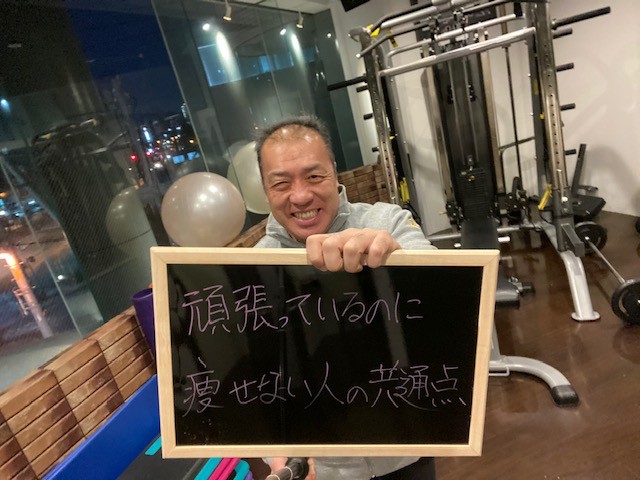 頑張っているのに
痩せない人の共通点